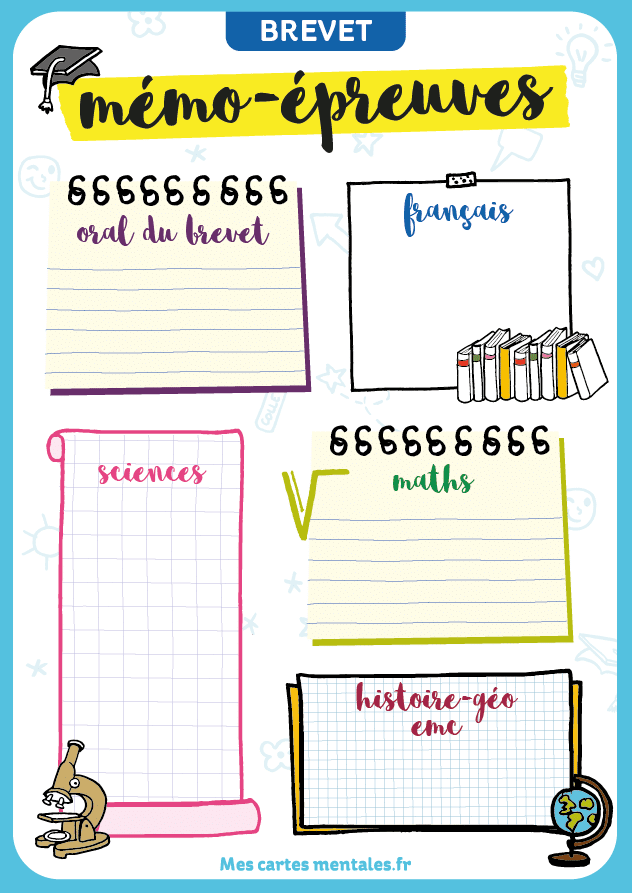 BREVET
mémo-épreuves
oral du brevet
français
sciences
maths
histoire-géo
emc
Mes cartes mentales.fr